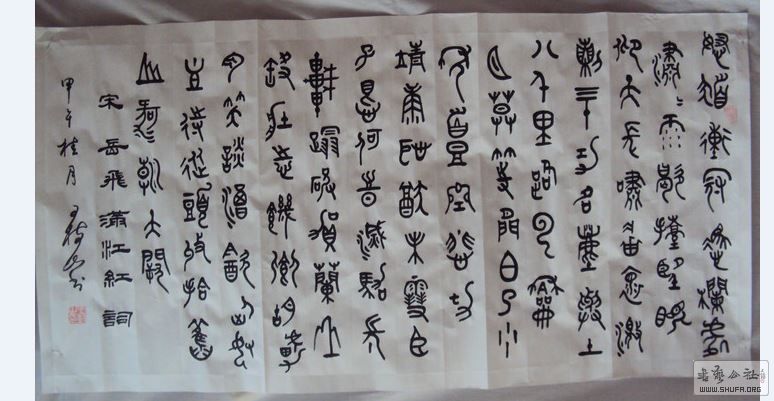 怒髮衝冠憑欄處
瀟〻雨歇擡望眼
仰天長嘯壯懷激
烈三十功名塵與土
八千里路雲和
月莫等閒白了少
年首空悲切
靖康恥猶未雪臣
子恨何時滅駕長
車踏破賀蘭山
缺壯志饑餐胡虜
肉笑談渴飲匈奴
血待從頭收拾舊
山河朝天闕
宋岳飛滿江紅詞
甲午桂月
书法公社
WWW.SHUFA.ORG